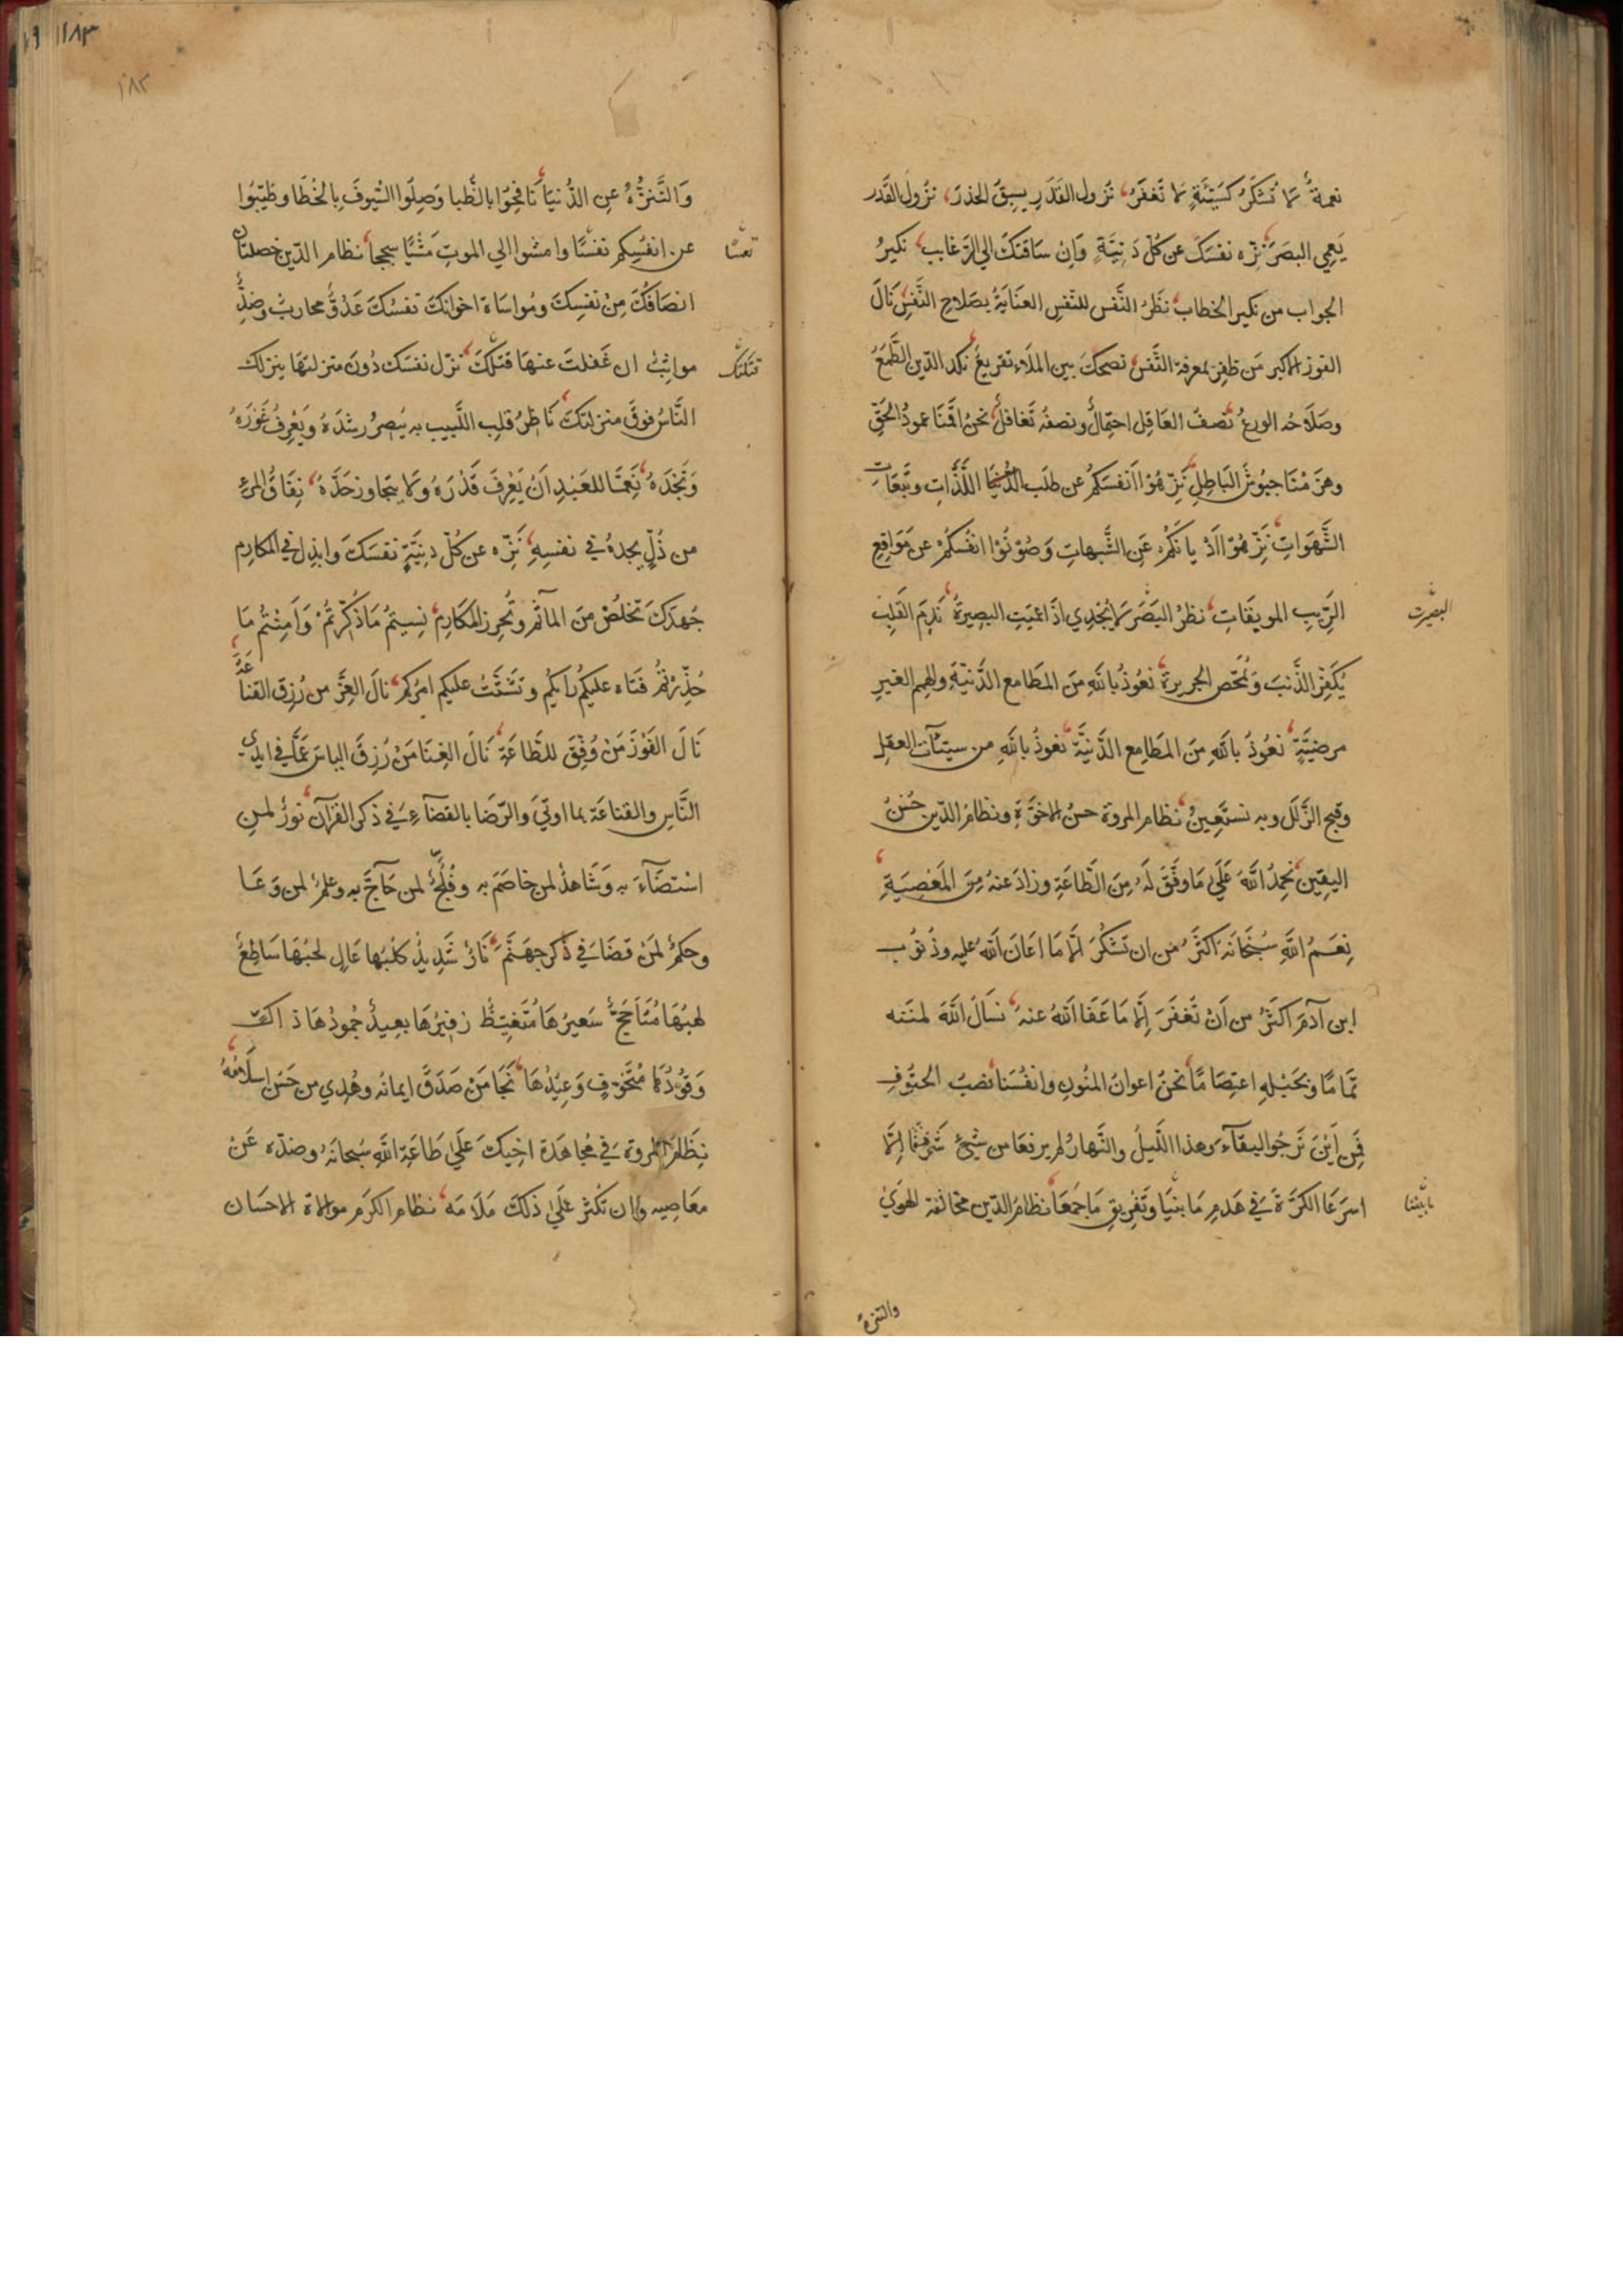 نعمةٌ لا تُشكَرُ كسَيّئَةٍ لا تُغفَرُ، نُزول القَدَرِ يسبِقُ الحذرَ، نزُول القَدر
يَعمِي البصَرَ، نَزِّه نفسَكَ عن كلّ دَنِيَّةٍ وَاِنْ سَاقَتكَ الي الرّغايب، نكيرُ
الجواب من نكير الخطاب، نَظَرُ النَّفس للنّفسِ العنَايَةُ بصَلاحِ النَّفسِ، نَالَ
الفوز الاكبر مَن ظفِرَ بمعرفة النَّفس، نصحكَ بين الملَاءِ تقريعٌ، نَكد الدّين الطَّمَعُ
وصَلَاحُه الورعُ، نصفُ العَاقِلِ احتِمالٌ ونصفُه تغَافلٌ، نحنُ اقَمنَا عمودَ الحَقِّ
وهزَمْنَا جيُوشَ البَاطِلِ، نَزِّهُوْا اَنفسَكُمْ عن طلَب اللَّذَّاتِ وتَبِعَاتِ
الشَّهَوَاتِ، نَزِّهُوْا اَدْيَانَكُمْ عَنِ الشُّبهاتِ وَصُوْنُوْا انفُسَكُمْ عن مَوَاقِعِ
الرَّيبِ الموبقَاتِ، نظرُ البَصَرَ لَا يُجْدِي اذَا عَمِيَتِ البصِيرَةُ، نَدِمَ القَلبِ
البصيرت
يُكَفِّرُ الذَّنبَ وَيُمَحّصِ الجريرة، نعُوْذُ بِاللّهِ مِنَ المطَامع الدَّنيّةِ والهِمم الغيرِ
مرضيّةٍ، نعُوْذُ باللّهِ مِنَ المَطَامِع الدَّنيَّة، نعُوذُ باللّهِ من سيّئآت العقلِ
وقبح الزَّلَلِ وبه نستَعِينُ، نظام المروة حسنُ الاخُوَّةِ ونظامُ الدّينِ حُسْنُ
اليقِين، نحمدُ اللّهَ عَلَي مَا وَفَّقَ لَهُ مِنَ الطَّاعَةِ وزادَ عنهُ مِنَ المَعْصِيَةِ
نِعَمُ اللّهِ سُبْحَانَه اَكثَرُ من ان تُشكَرَ اِلّا مَا اعَانَ اللّهُ عليه وذُنوُب
ابن آدمَ اكثَرُ من اَنْ تُغفَرَ اِلَّا مَا عَفَا اللّهُ عنهُ، نسَالُ اللّهَ لمنّته
تمَامًا وبحَبْلِهِ اعتِصَامًا، نحنُ اعوانُ المنُونِ وانفُسُنَا نصبُ الحتُوفِ
فمِن اَيْنَ نَرجُوا البقآءَ وهذا اللَّيلُ والنَّهارُ لم يرفعَا من شيءٍ شَرَفًا اِلَّا
اسرَعَا الكَرَّةَ في هَدمِ مَا بنَيَا وتَفْرِيقِ مَا جَمَعَا، نظامُ الدّين مخالفة الهوَيٰ
مابنينا
والتنزهُ
١١٨٣
١٨٣
وَالتَّنزُّهُ عنِ الدُّنيَا، نَافِحُوا بالظُّبا وَصِلُوا السُّيوفَ بِالخُطَا وطَيِّبُوا
عن انفُسِكم نفسًا وامشوا الي الموتِ مَشيًا سججا، نظام الدّينِ خصلتان
انصَافُكَ مِنْ نفسِكَ ومُواسَاة اخوانِكَ، نفسُكَ عَدُوٌّ محاربٌ وضدٌّ
مواثِبٌ ان غَفلتَ عنهَا قتَلَتْكَ، نزّل نفسَك دُونَ منزلتِهَا ينزلك
قتلتك
النَّاسُ فوقَ منزلتكَ، نَاظِرُ قلبِ اللَّبيبِ به يُبصِرُ رشدَهُ وَيَعْرِفُ غَوْرَهُ
وَنَجْدَهُ، نِعِمَّا للعَبْدِ اَنْ يَعْرِفَ قَدْرَهُ وَلَا يتجاوز حَدَّهُ، نِفَاقُ المرءِ
من ذُلٍّ يجدهُ في نفسِهِ، نَزِّه عن كُلّ دنِيَّةٍ نفسَكَ وابذِل في المكارِم
جُهدَكَ تخلُصْ مِنَ المآثمِ وتُحرز المكَارِم، نسِيتُم مَا ذُكِّرتُمْ وَاَمِنْتُم مَا
حُذِّرْتُمْ فتَاه عليكُمْ رَايكُم وتشَتَّتَ عليكم امرُكم، نالَ العِزَّ من رُزِقَ القنَاعَة
نَالَ الفَوْزَ مَنْ وُفِّقَ للطَّاعَةِ، نَالَ الغِنَا مَنْ رُزِقَ الياسَ عَمَّا في ايدي
النَّاسِ والقنَاعَة بما اوتِيَ والرّضَا بالقضَآءِ، في ذكر القرآن نورٌ لمنِ
اسْتضَآءَ به وَشَاهدٌ لمن خاصَمَ به وفُلْجٌ لمن حَاجَّ به وعلمٌ لمن وَعَا
وحكمٌ لمَنْ قضَا، في ذكر جهَنَّمَ، نَارٌ شَدِيدٌ كلَبُها عَالٍ لجبُهَا سَاطِعٌ
لهبُهَا مُتَاَجِّجٌ سَعيرُهَا مُتَغيِّظٌ زفِيرُهَا بعيدٌ خمودُهَا ذاكٍ
وَقُوْدُهَا مُتَخَوّفٍ وَعِيْدُهَا، نَجَا مَنْ صَدَقَ ايمانُه وهُدِي من حَسُنَ اسلَامُهُ
نظَامُ المروة في مُجاهَدَة اخيكَ عَلَي طَاعَةِ اللّهِ سُبحانَهُ وصدّه عَنْ
معَاصِيه وان تُكثر علَي ذلكَ مَلَامَه، نظام الكرَم موالاة الاحسَان